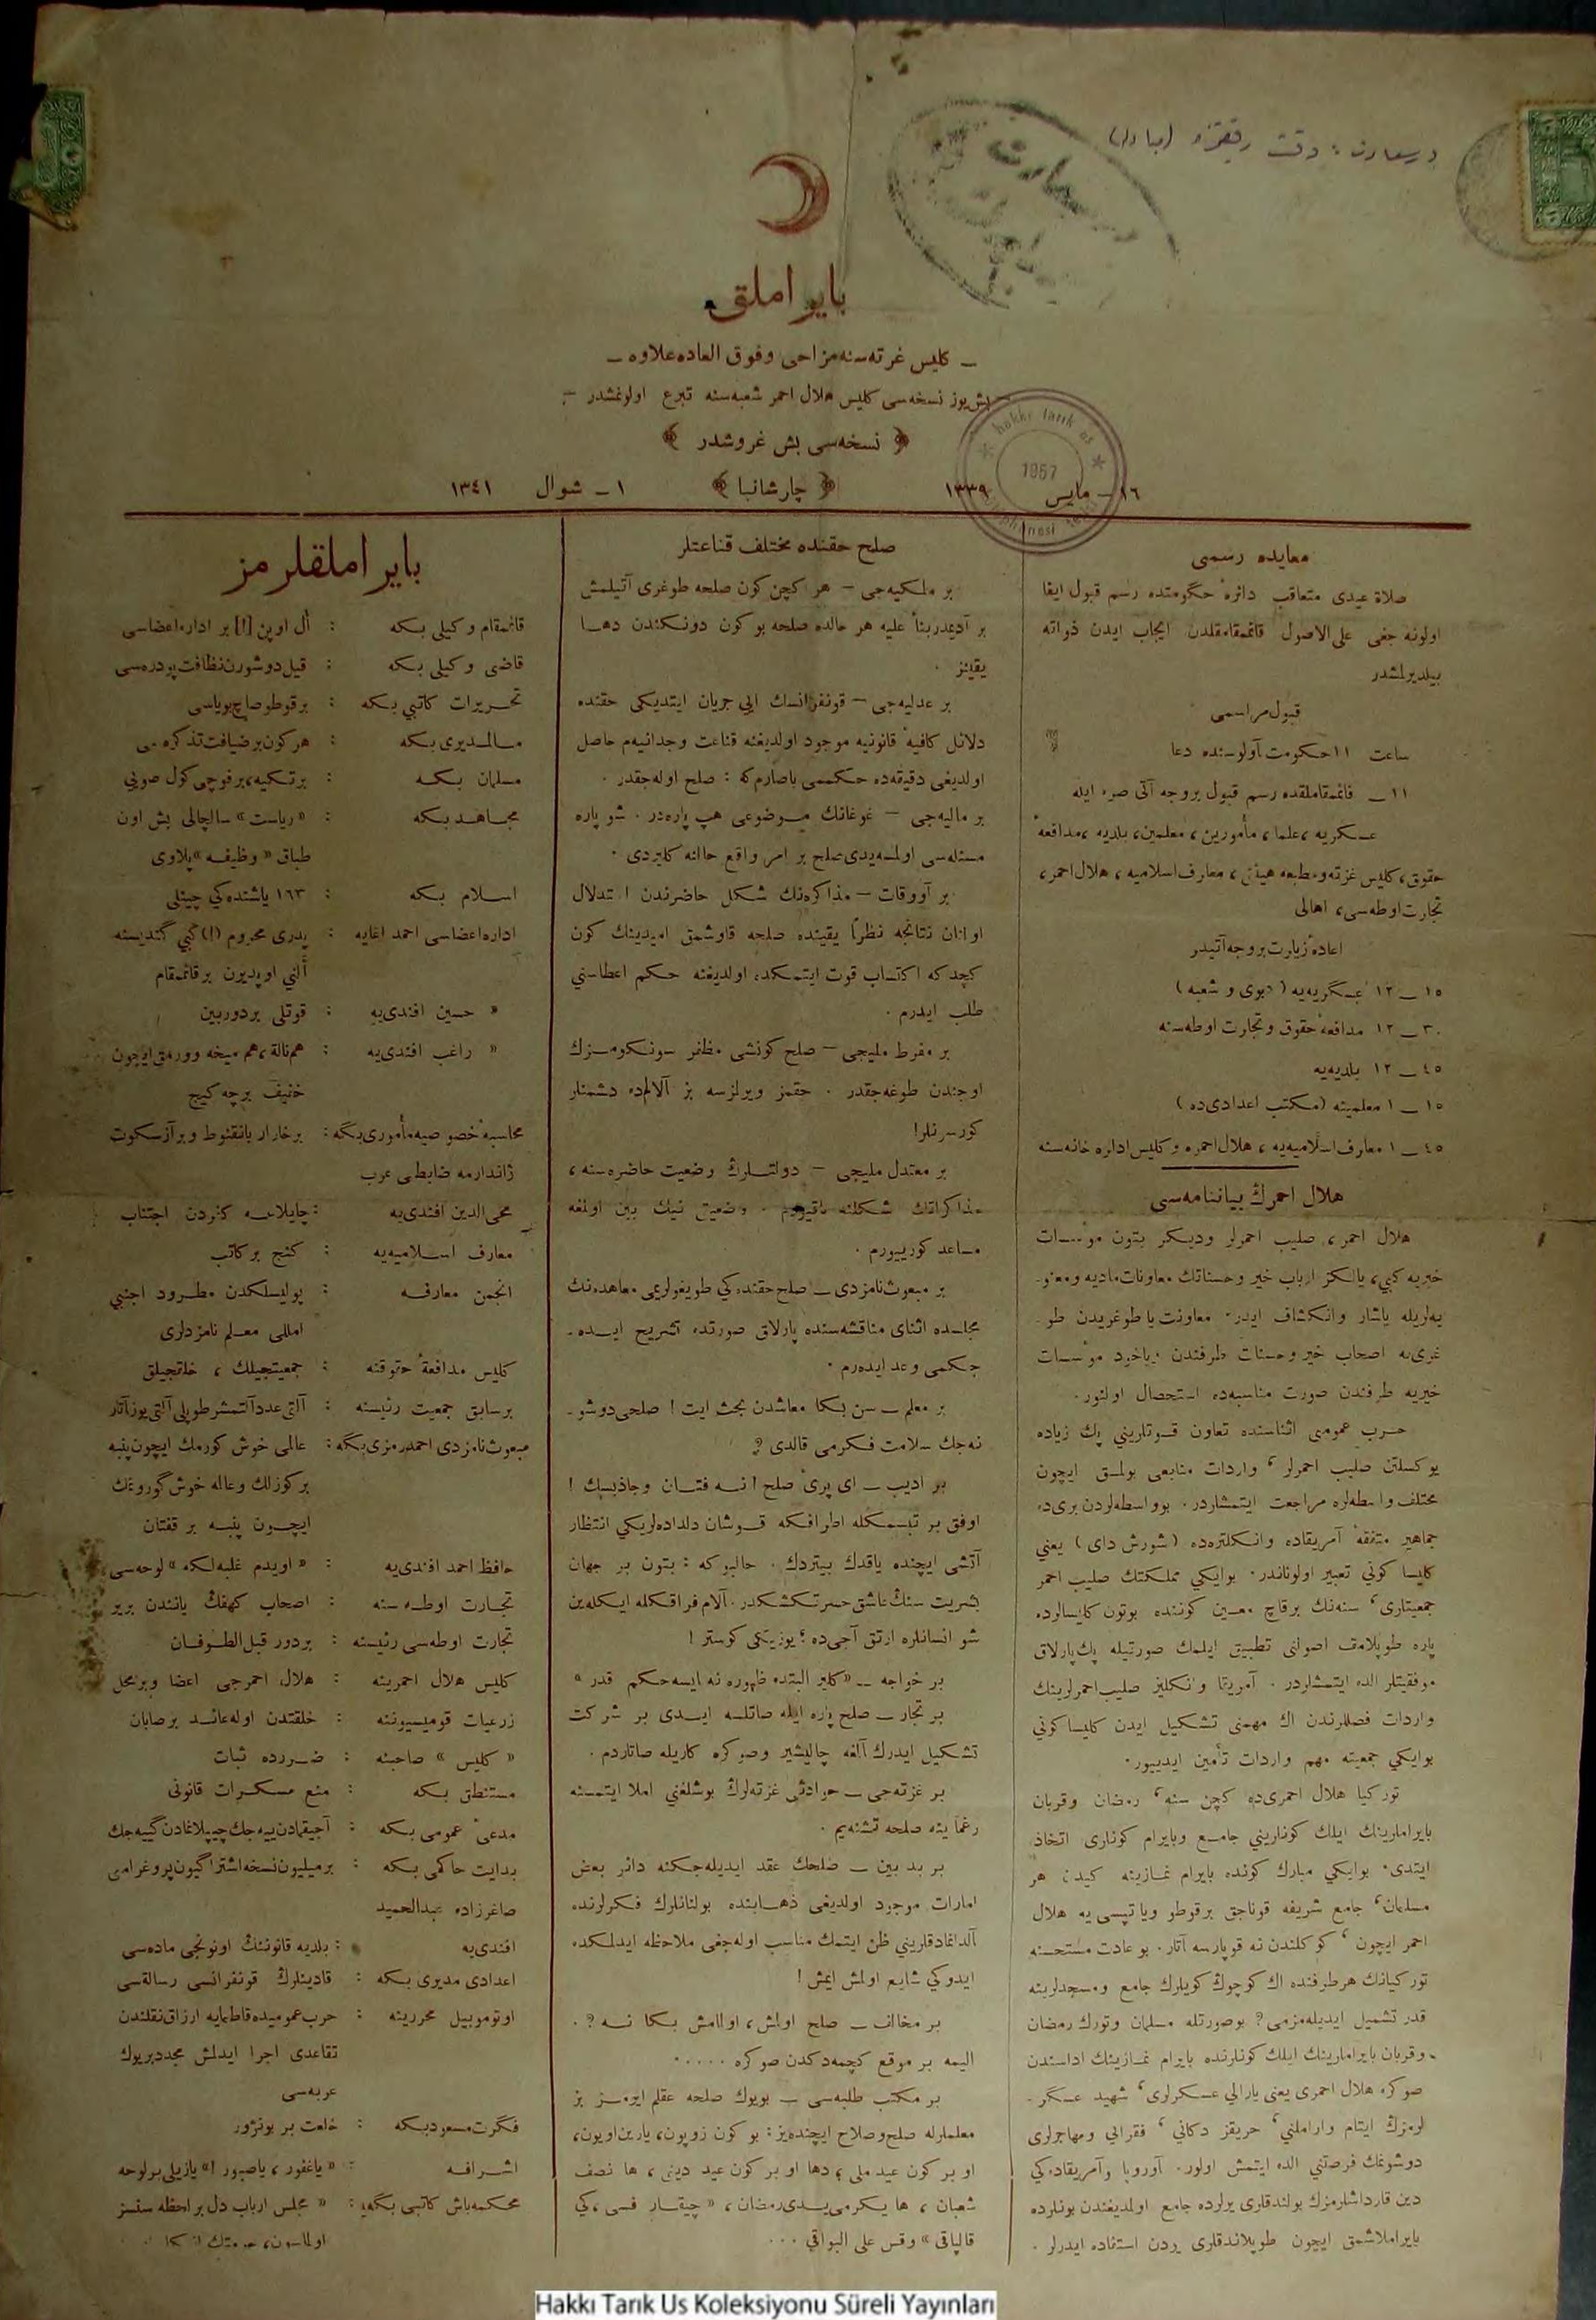 بايراملق
ـ كليس غزته‌سنه مزاحى وفوق العاده علاوه ـ
ـ بش يوز نسخه‌سى كليس هلال احمر شعبه‌سنه تبرع اولونمشدر ـ
﴿ نسخه‌سى بش غروشدر ﴾
١٦ ـ مايس ١٣٣٩ ﴿ چارشانبا ﴾ ١ ـ شوال ١٣٤١
hakkı tarık us
1957
معايده رسمى
صلاة عيدى متعاقب دائرهٔ حكومتده رسم قبول ايفا
اولونه جغى على الاصول قائمقاملقدن ايجاب ايدن ذواته
بيلديرلمشدر
قبول مراسمى
ساعت ١١ حكومت آولوسنده دعا
١١ ـ قائمقاملقده رسم قبول بروجه آتى صره ايله
عسكريه، علما، مأمورين، معلمين، بلديه، مدافعهٔ
حقوق، كليس غزته ومطبعه هيئتى، معارف اسلاميه، هلال احمر،
تجارت اوطه‌سى، اهالى
اعادهٔ زيارت بروجه آتيدر
١٥ ـ ١٢ عسكريه‌يه ( ديوى و شعبه )
٣٠ ـ ١٢ مدافعهٔ حقوق وتجارت اوطه‌سنه
٤٥ ـ ١٢ بلديه‌يه
١٥ ـ ١ معلمينه (مكتب اعدادى‌ده )
٤٥ ـ ١ معارف اسلاميه‌يه، هلال احمره وكليس اداره خانه‌سنه
هلال احمرك بياننامه‌سى
هلال احمر، صليب احمرلر وديكر بتون مؤسسات
خيريه كبى، يالكز ارباب خير وحسناتك معاونات ماديه ومعنو ـ
يه‌لريله ياشار وانكشاف ايدر. معاونت يا طوغريدن طو ـ
غرى‌يه اصحاب خير وحسنات طرفندن وياخود مؤسسات
خيريه طرفندن صورت مناسبه‌ده استحصال اولنور.
حرب عمومى اثناسنده تعاون قوتلرينى پك زياده
يوكسلتن صليب احمرلر، واردات منابعى بولمق ايچون
مختلف واسطه‌لره مراجعت ايتمشلردر. بو واسطه‌لردن برى‌ده
جماهير متفقهٔ آمريقاده وانكلتره‌ده (شورش داى) يعنى
كليسا كونى تعبير اولونانلدر. بوايكى مملكتك صليب احمر
جمعيتلرى، سنه‌نك برقاچ معين كوننده بوتون كليسالرده
پاره طوپلامق اصولنى تطبيق ايلمك صورتيله پك پارلاق
موفقيتلر الده ايتمشلردر. آمريقا وانكليز صليب احمرلرينك
واردات فصللرندن اك مهمنى تشكيل ايدن كليسا كونى
بوايكى جمعيته مهم واردات تأمين ايدييور.
توركيا هلال احمرى‌ده كچن سنه، رمضان وقربان
بايراملرينك ايلك كونلرينى جامع وبايرام كونلرى اتخاذ
ايتدى. بوايكى مبارك كونده بايرام نمازينه كيدن هر
مسلمان، جامع شريفه قوناجق برقوطو ويا تپسى يه هلال
احمر ايچون، كوكلندن نه قوپارسه آتار. بو عادت مستحسنه
توركيانك هرطرفنده اك كوچوك كويلرك جامع ومسجدلرينه
قدر تشميل ايديله‌مزمى؟ بوصورتله مسلمان وتورك رمضان
وقربان بايراملرينك ايلك كونلرنده بايرام نمازينك اداسندن
صوكره هلال احمرى يعنى يارالى عسكرلرى، شهيد عسكر ـ
لرمزك ايتام واراملنى، حريقز دكانى، فقرايى ومهاجرلرى
دوشونمك فرصتنى الده ايتمش اولور. آوروپا وآمريقاده‌كى
دين قارداشلرمزك بولندقلرى يرلرده جامع اولمديغندن بونلرده
بايراملاشمق ايچون طوپلاندقلرى يردن استفاده ايدرلر.
صلح حقنده مختلف قناعتلر
بر ملكيه‌جى ـ هر كچن كون صلحه طوغرى آتيلمش
بر آديمدر بناً عليه هر حالده صلحه بو كون دونكندن دها
يقينز.
بر عدليه‌جى ـ قونفرانسك ايى جريان ايتديكى حقنده
دلائل كافيهٔ قانونيه موجود اولديغنه قناعت وجدانيه‌م حاصل
اولديغى دقيقه‌ده حكممى باصارم كه : صلح اوله‌جقدر.
بر ماليه‌جى ـ غوغانك موضوعى هپ پاره‌در. شو پاره
مسئله‌سى اولمسه‌يدى صلح بر امر واقع حالنه كليردى.
بر آووقات ـ مذاكره‌نك شكل حاضرندن استدلال
اولنان نتائجه نظراً يقينده صلحه قاوشمق اميدينك كون
كچدكه اكتساب قوت ايتمكده اولديغنه حكم اعطاسنى
طلب ايدرم.
بر مفرط مليجى ـ صلح كونشى مظفر سونكومزك
اوجندن طوغه‌جقدر. حقمز ويرلزسه بز آلالم‌ده دشمنلر
كورسونلر!
بر معتدل مليجى ـ دولتلرك وضعيت حاضره‌سنه،
مذاكراتك شكلنه باقيورم. وضعيتى نيك بين اولمغه
مساعد كورييورم.
بر مبعوث نامزدى ـ صلح حقنده‌كى طويغولريمى معاهده‌نك
مجلسده اثناى مناقشه‌سنده پارلاق صورتده تشريح ايده ـ
جكمى وعد ايده‌رم.
بر معلم ـ سن بكا معاشدن بحث ايت! صلحى دوشو ـ
نه‌جك سلامت فكرمى قالدى؟
بر اديب ـ اى پرىٔ صلح! نه فتان وجاذبسك!
اوفق بر تبسمكله اطرافكه قوشان دلداده‌لريكى انتظار
آتشى ايچنده ياقدك بيتردك. حالبوكه : بتون بر جهان
بشريت سنك عاشق حسرتكشكدر. آلام فراقكله ايكله‌ين
شو انسانلره ارتق آجى‌ده ؛ يوزيكى كوستر!
بر خواجه ـ «كلير البته‌ده ظهوره نه ايسه حكم قدر»
بر تجار ـ صلح پاره ايله صاتلسه ايدى بر شركت
تشكيل ايدرك آلغه چاليشير وصوكره كاريله صاتاردم.
بر غزته‌جى ـ حوادثى غزته‌لرك بوشلغنى املا ايتمسنه
رغماً ينه صلحه تشنه‌يم.
بر بد بين ـ صلحك عقد ايديله‌جكنه دائر بعض
امارات موجود اولديغى ذهابنده بولنانلرك فكرلرنده
آلدانمادقلرينى ظن ايتمك مناسب اوله‌جغى ملاحظه ايدلمكده
ايدوكى شايع اولمش ايمش!
بر مخالف ـ صلح اولمش، اولمامش بكا نه؟.
اليمه بر موقع كچمه‌دكدن صوكره.....
بر مكتب طلبه‌سى ـ بويوك صلحه عقلم ايرمز بز
معلملرله صلح وصلاح ايچنده‌يز : بو كون زوپون، يارين اويون،
او بر كون عيد ملى، دها او بر كون عيد دينى، ها نصف
شعبان، ها يكرمى يدى رمضان، « چيقار فسى، كى
قالپاقى » وقس على البواقى...
بايراملقلرمز
قائمقام وكيلى بكه : أل اوپن [!] بر اداره اعضاسى
قاضى وكيلى بكه : قيل دوشورن نظافت پودره‌سى
تحريرات كاتبى بكه : برقوطو صاچ بوياسى
مالمديرى بكه : هركون بر ضيافت تذكره‌سى
مسلمان بكه : برتكيه، برفوچى كول صويى
مجاهد بكه : «رياست» سالچالى بش اون
طباق «وظيفه» پلاوى
اسلام بكه : ١٦٣ ياشنده‌كى چيتلى
اداره اعضاسى احمد اغايه : پدرى محروم (!) كبى كنديسنه
ألنى اوپديرن برقائمقام
« حسين افندى‌يه : قوتلى بردوربين
« راغب افندى‌يه : هم نالة، هم ميخه وورمق ايچون
خفيف برچه كيچ
محاسبهٔ خصوصيه مأمورى بكه : برخارلر بانقنوط وبرآز سكوت
ژاندارمه ضابطى عرب
محى‌الدين افندى‌يه : چايلاغه كزدن اجتناب
معارف اسلاميه‌يه : كنج بركاتب
انجمن معارفه : پوليسلكدن مطرود اجنبى
امللى معلم نامزدلرى
كليس مدافعهٔ حقوقنه : جمعيتجيلك، خلقجيلق
برسابق جمعيت رئيسنه : آلتى عدد آلتمشر طوپلى آلتى يوز آتار
مبعوث نامزدى احمد رمزى بكه : عالمى خوش كورمك ايچون پنبه
بركوزلك وعالمه خوش كورونمك
ايچون پنبه بر قفتان
حافظ احمد افندى‌يه : «اويدم غلبه‌لكه» لوحه‌سى
تجارت اوطه سنه : اصحاب كهفك ياننده برير
تجارت اوطه‌سى رئيسنه : بردور قبل الطوفان
كليس هلال احمرينه : هلال احمرجى اعضا وبرمحل
زرعيات قوميسيوننه : خلقتدن اوله عائد برصابان
«كليس» صاحبنه : ضررده ثبات
مستنطق بكه : منع مسكرات قانونى
مدعىٔ عمومى بكه : آجيقمادن ييه‌جك چيپلاغادن كييه‌جك
بدايت حاكمى بكه : برميليون نسخه اشتراكيون پروغرامى
صاغرزاده عبدالحميد
افندى‌يه : بلديه قانوننك اوننجى ماده‌سى
اعدادى مديرى بكه : قادينلرك قونفرانسى رساله‌سى
اوتوموبيل محررينه : حرب عموميده قاطالمايه ارزاق نقلندن
تقاعدى اجرا ايدلمش مجدد بريوك
عربه‌سى
فكرت مسعود بكه : خلعت بر بونژور
اشرافه : «ياغفور، ياصبور!» يازيلى برلوحه
محكمه باش كاتبى بكه : « مجلس ارباب دل برلحظه سنسز
اولماسون،
Hakkı Tarık Us Koleksiyonu Süreli Yayınları